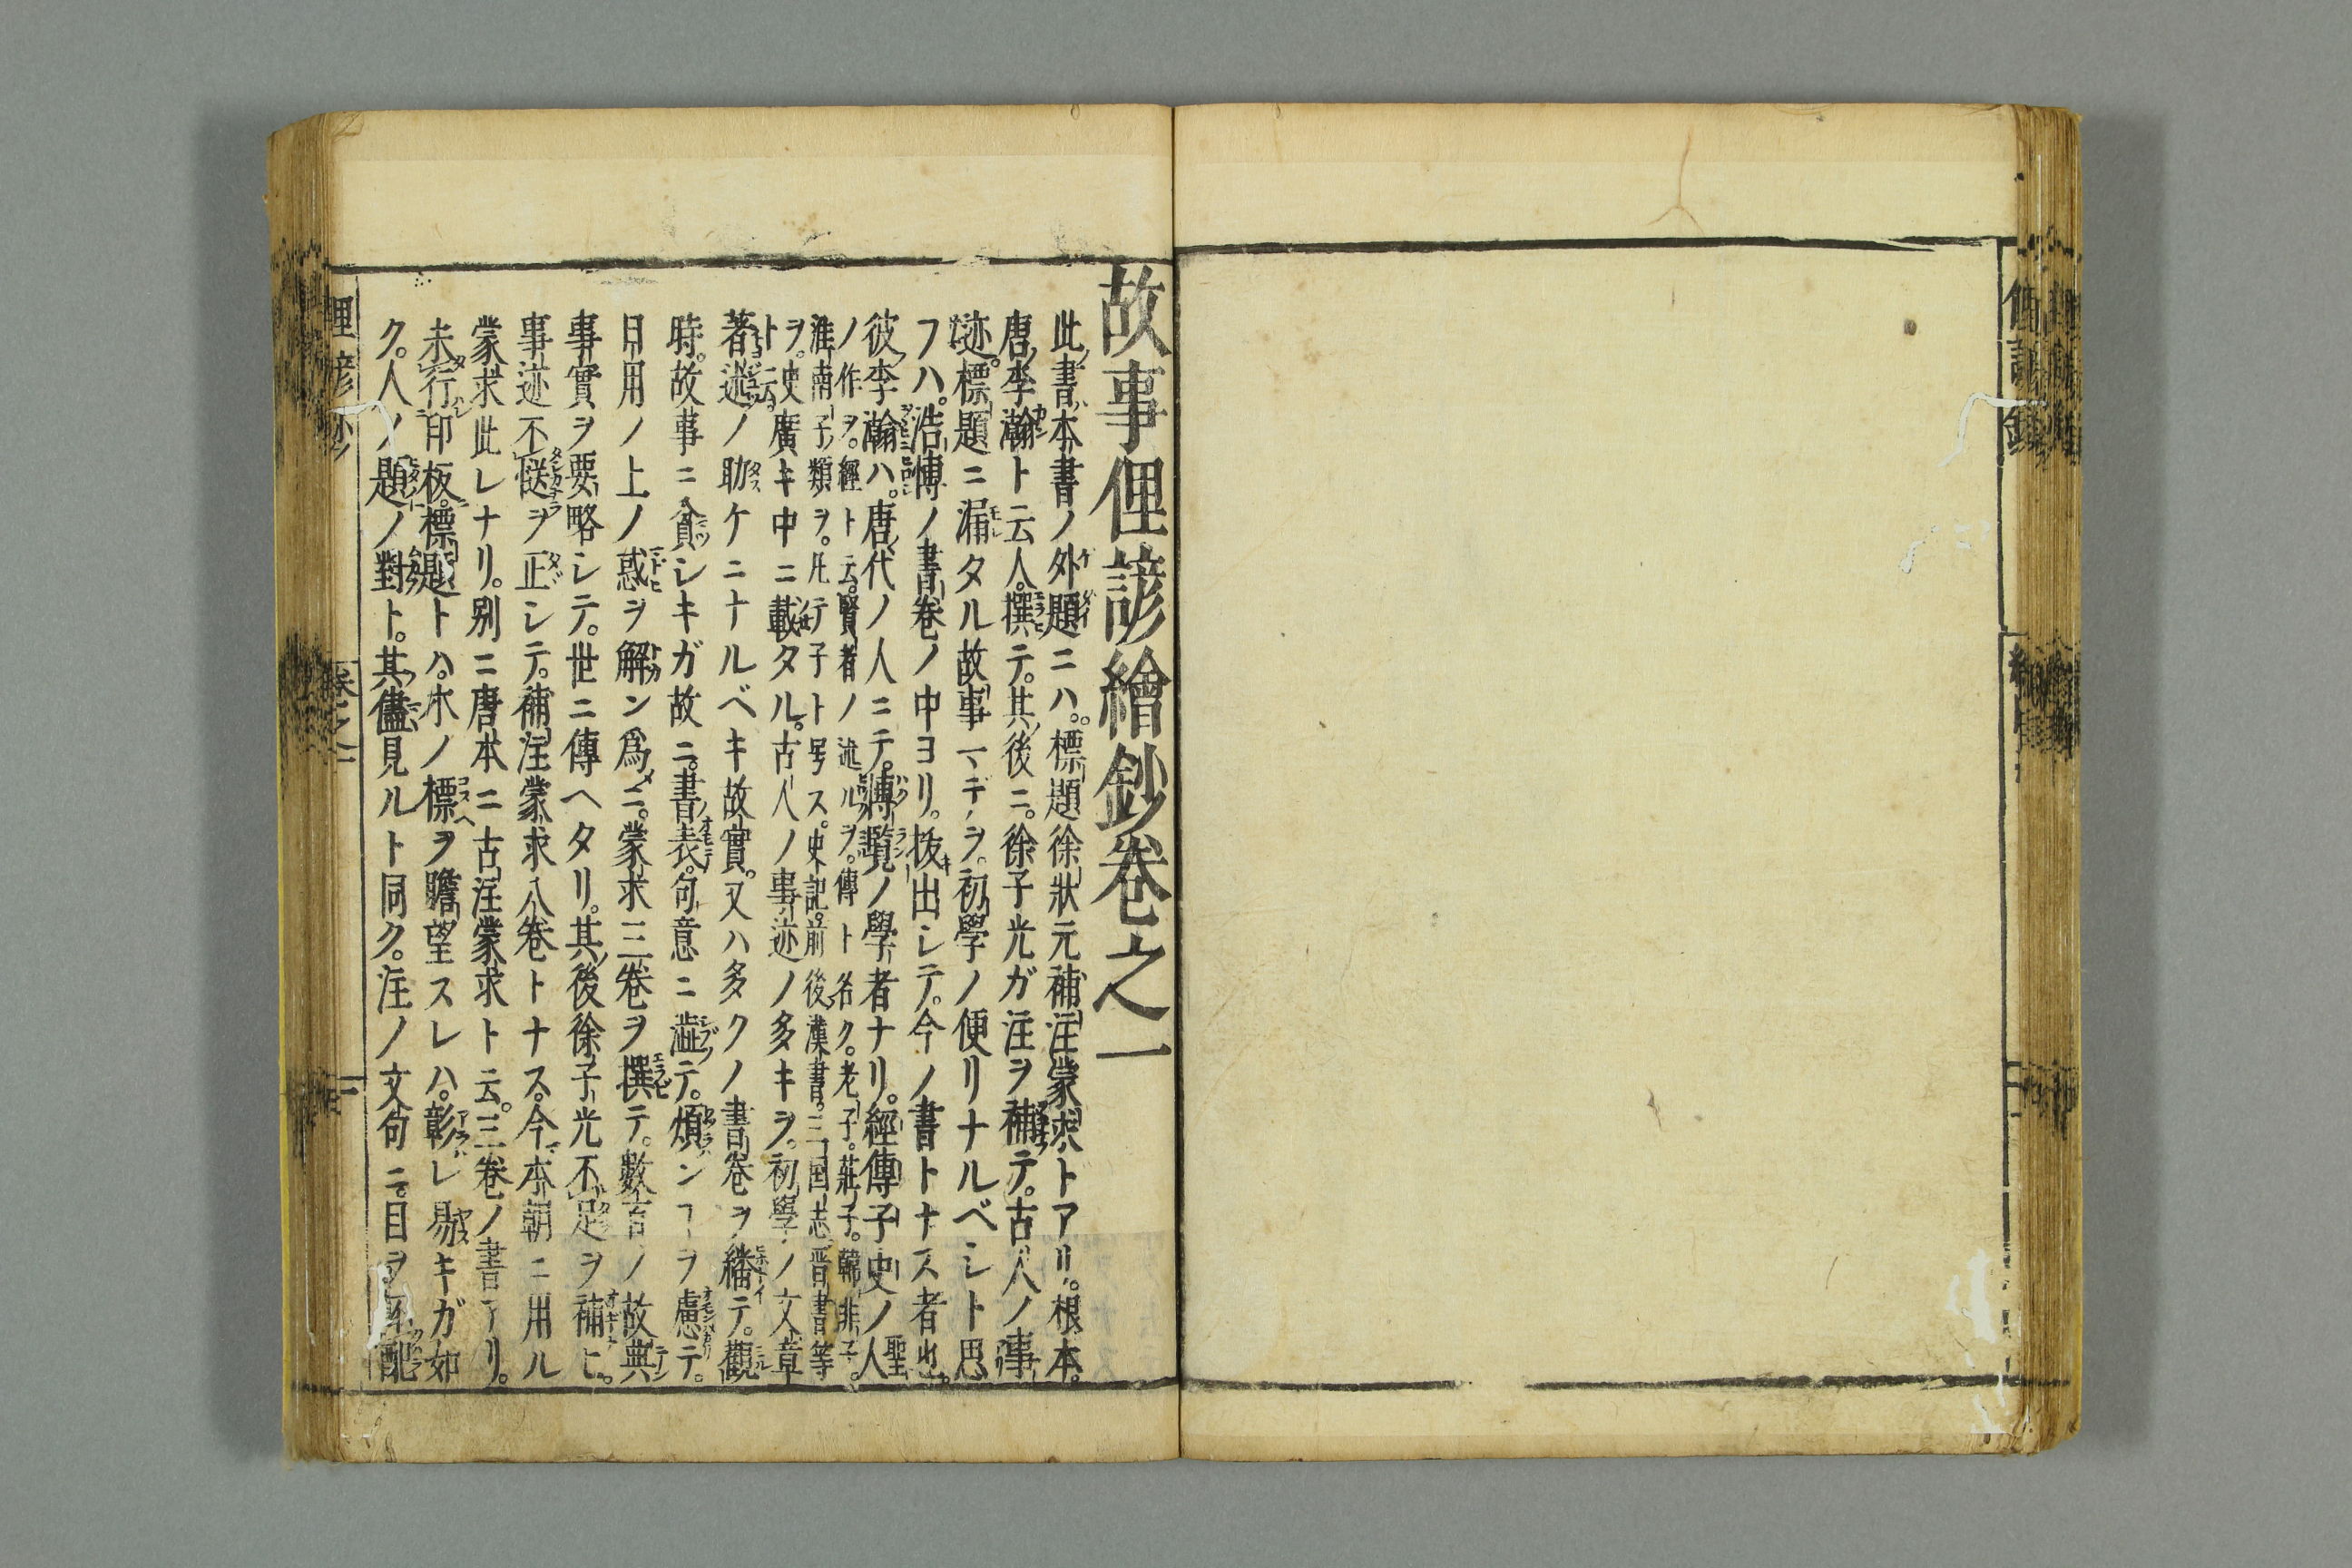 故事俚諺繪鈔卷之一
此書本書ノ外題ニハ。標題徐狀元補注蒙求トアリ。根本。
唐ノ李瀚ト云人。撰テ。其後ニ。徐子光ガ注ヲ補テ。古人ノ事
迹。標題ニ漏タル故事マデヲ。初學ノ便リナルベシト思
フハ。浩博ノ書卷ノ中ヨリ。拔出シテ。今ノ書トナス者也。
彼李瀚ハ。唐代ノ人ニテ。博覽ノ學者ナリ。經傳子史ノ人聖
ノ作ヲ。經ト云。賢者ノ述ルヲ。傳ト名ク。老子。莊子。韓非子。
淮南子ノ類ヲ。凡テ子ト号ス。史記。前後漢書。三国志。晋書等
ヲ。史ト云。廣キ中ニ載タル。古人ノ事迹ノ多キヲ。初學ノ文章
著述ノ助ケニナルベキ故實。又ハ多クノ書卷ヲ繙テ。觀
時。故事ニ貧シキガ故ニ。書表。句意ニ澁テ。煩ンヿヲ慮テ。
日用ノ上ノ惑ヲ解ン爲ニ。蒙求三卷ヲ撰テ。數百ノ故典
事實ヲ要略シテ。世ニ傳ヘタリ。其後徐子光不足ヲ補ヒ。
事迹不愜ヲ正シテ。補注蒙求八卷トナス。今本朝ニ用ル
蒙求此レナリ。別ニ唐本ニ古注蒙求ト云。三卷ノ書アリ。
未行印板。標題トハ。木ノ標ヲ瞻望スレハ。彰レ易キガ如
ク。人ノ題ノ對ト。其儘見ルト同ク。注ノ文句ニ。目ヲ配
俚諺鈔
卷之一